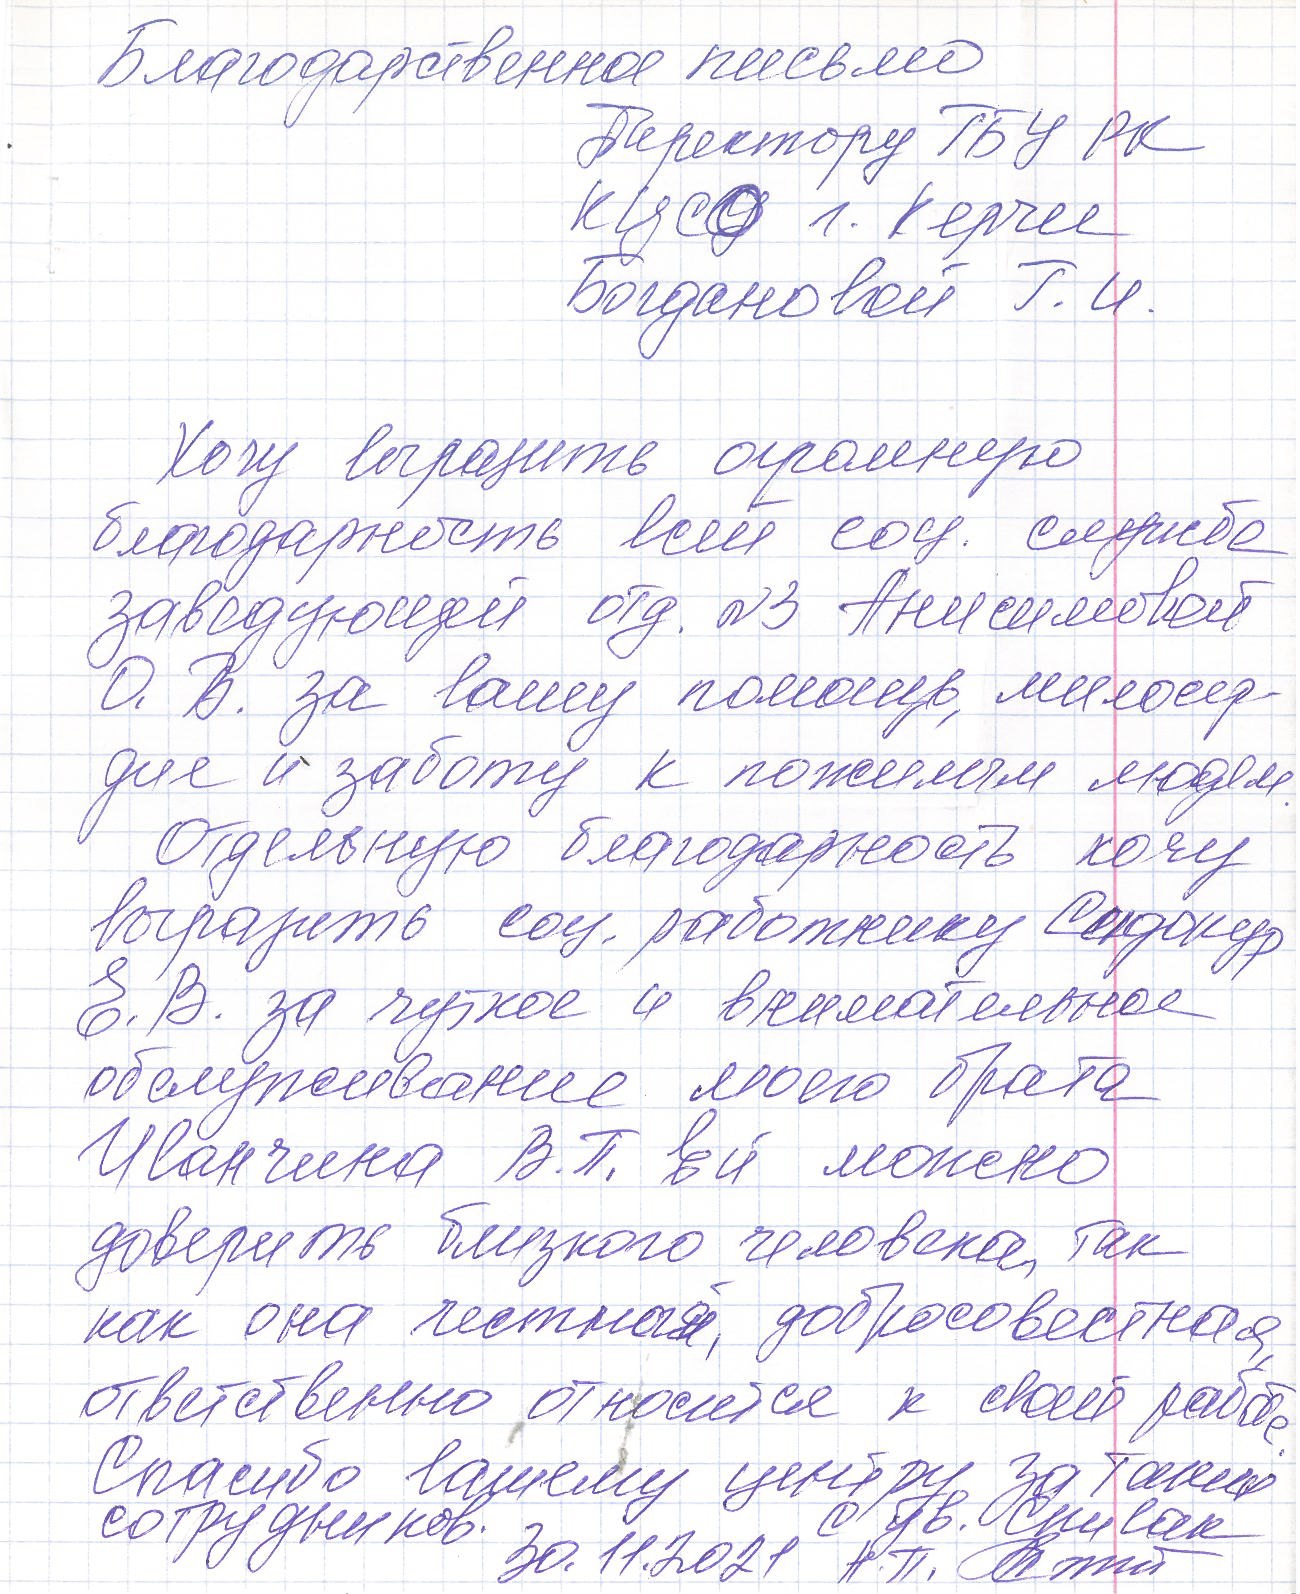 Благодарственное письмо
Директору ГБУ РК
КЦСО г. Керчи
Богдановой Г. И.
Хочу выразить огромную
благодарность всей соц. службе
заведующей отд. №3 Анисимовой
О. В. за вашу помощь, милосер-
дие и заботу к пожилым людям.
Отдельную благодарность хочу
выразить соц. работнику
Е. В. за чуткое и внимательное
обслуживание моего брата
Иванчина В.П. Ей можно
доверить близкого человека, так
как она честная, добросовестная,
ответственно относится к своей работе.
Спасибо вашему центру за таких
сотрудников. С ув. Спивак
30.11.2021 Н.П.